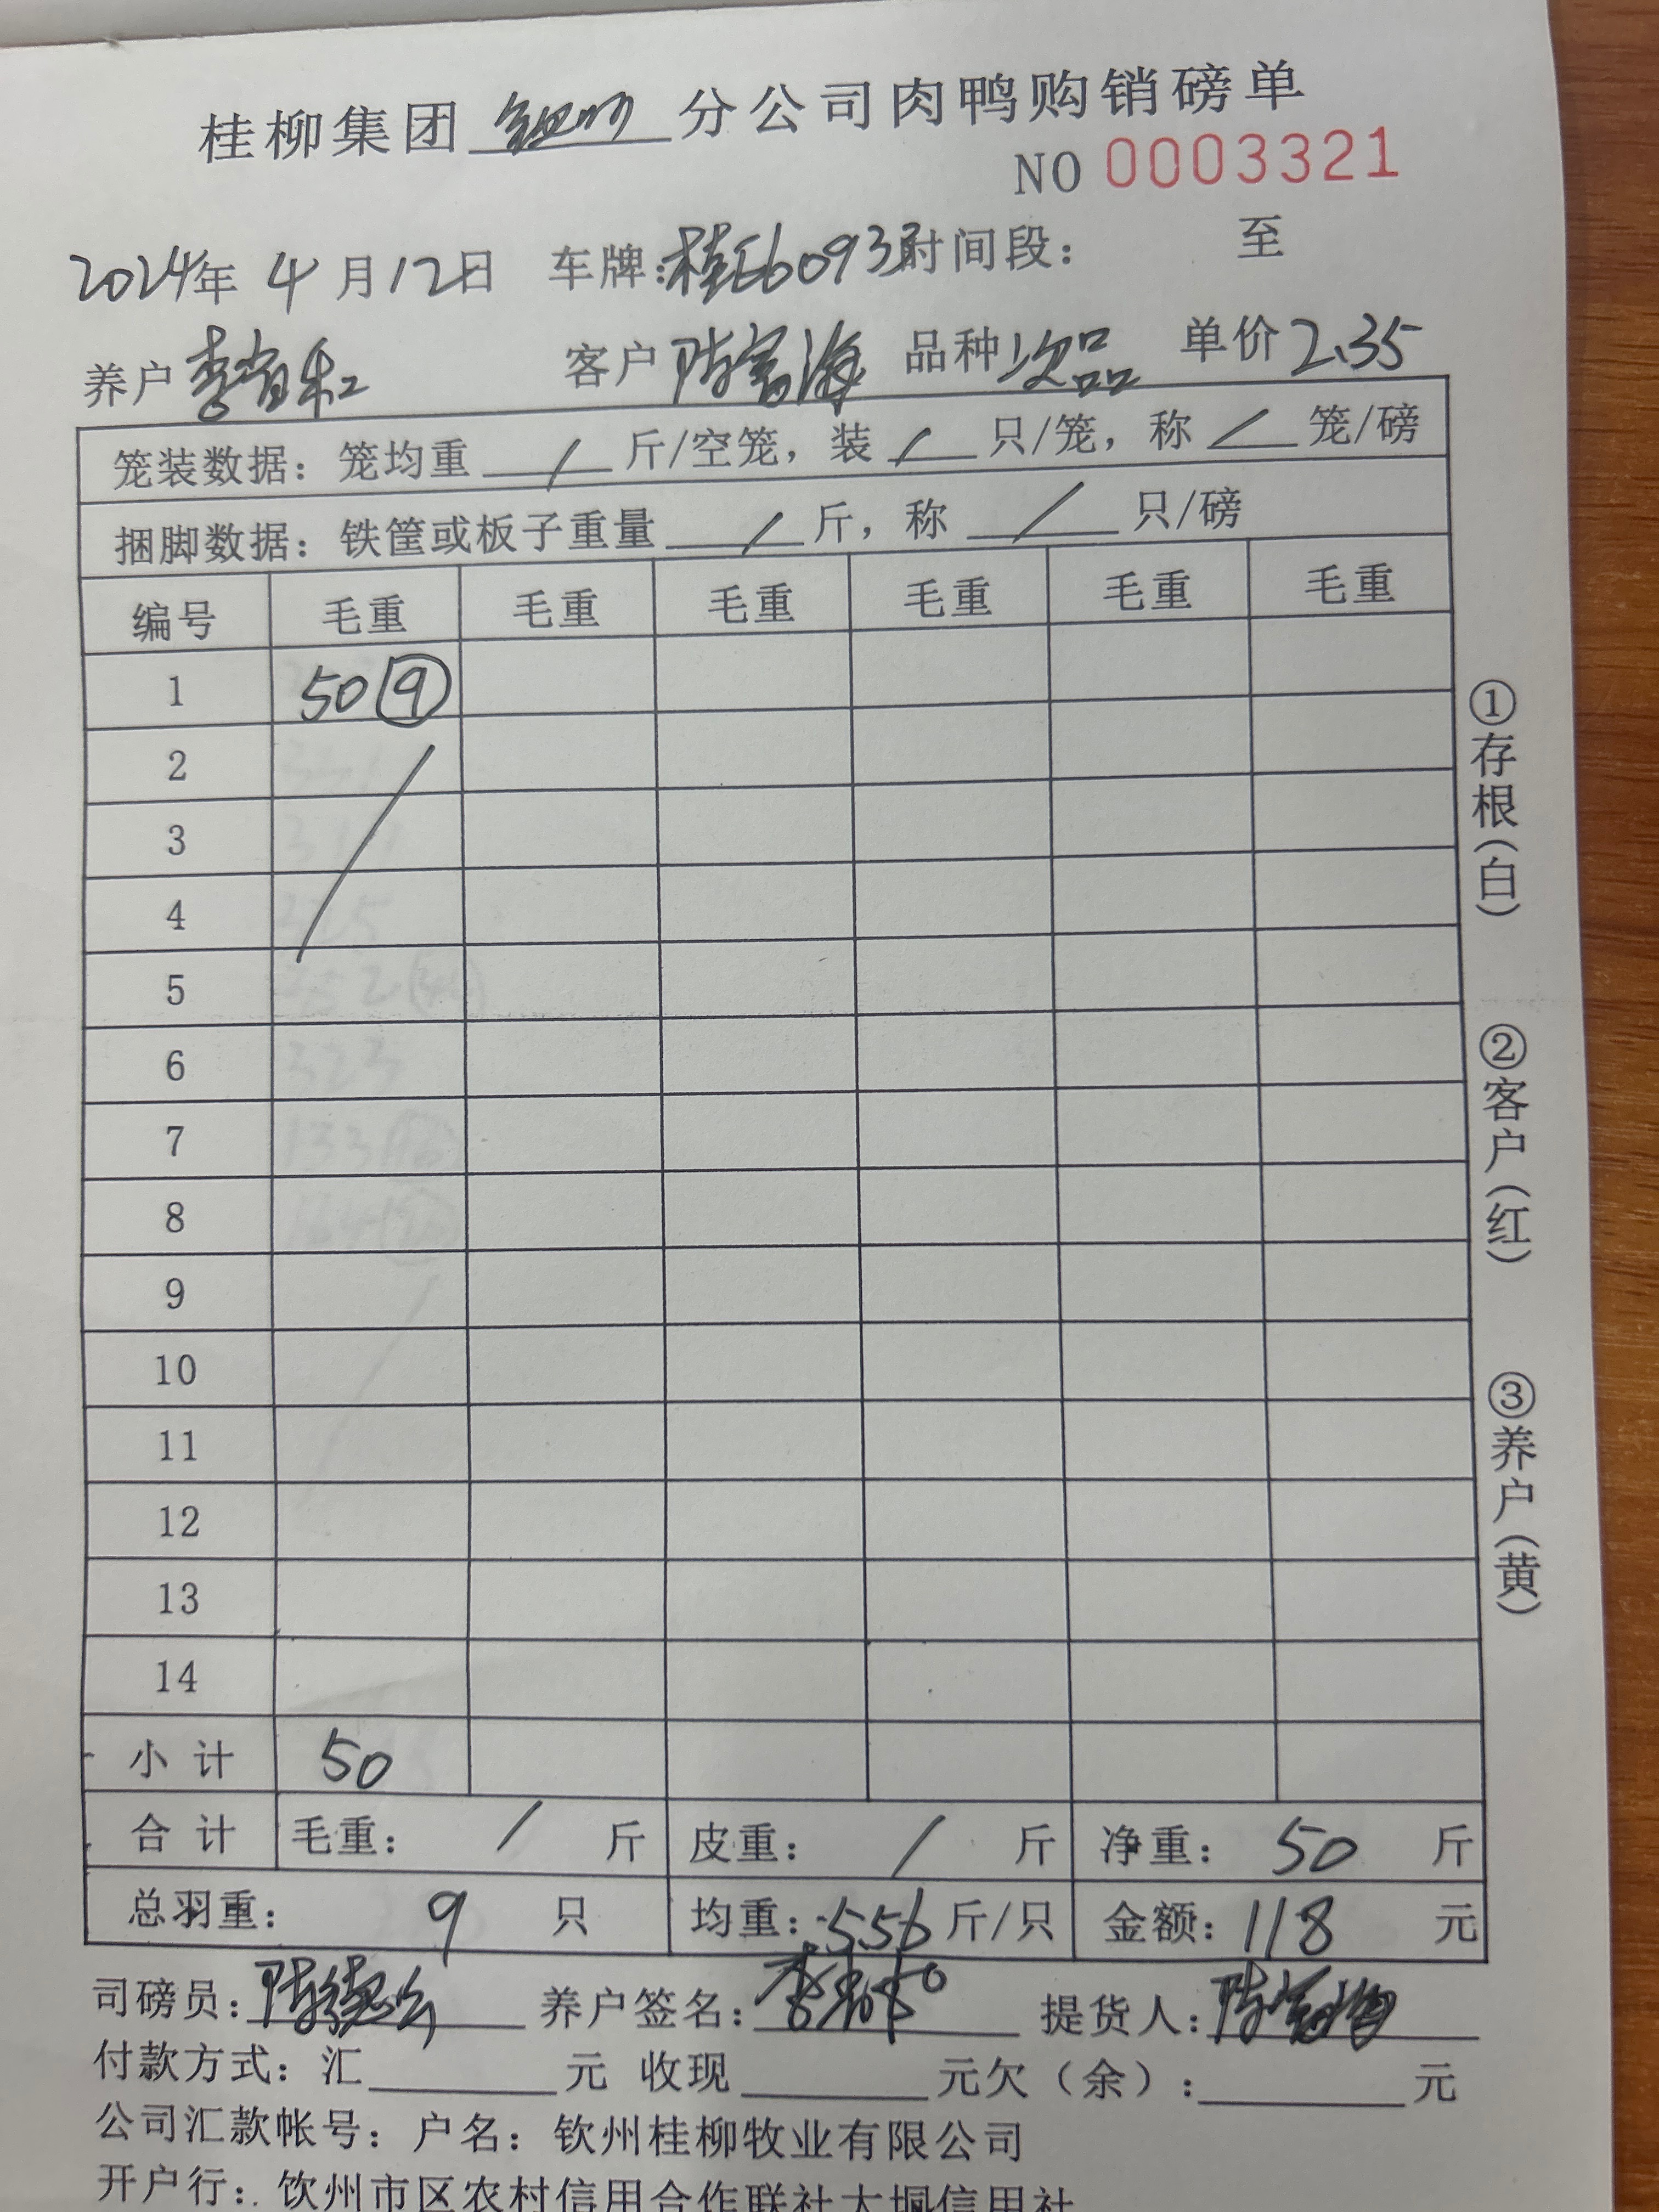 桂柳集团 钦州 分公司肉鸭购销磅单
NO 0003321
2024年 4月12日 车牌: 时间段: 至
养户 李 客户 陈富海 品种 次品 单价 2.35
笼装数据: 笼均重 / 斤/空笼, 装 / 只/笼, 称 / 笼/磅
捆脚数据: 铁筐或板子重量 / 斤, 称 / 只/磅
编号 毛重 毛重 毛重 毛重 毛重 毛重
1 50 ⑨
2
3
4
5
6
7
8
9
10
11
12
13
14
小计 50
合计 毛重: / 斤 皮重: / 斤 净重: 50 斤
总羽重: 9 只 均重: 5.56 斤/只 金额: 118 元
司磅员: 陈 养户签名: 李 提货人: 陈富海
付款方式: 汇 元 收现 元欠(余): 元
公司汇款帐号: 户名: 钦州桂柳牧业有限公司
开户行: 钦州市区农村信用合作联社大垌信用社
①存根(白)
②客户(红)
③养户(黄)